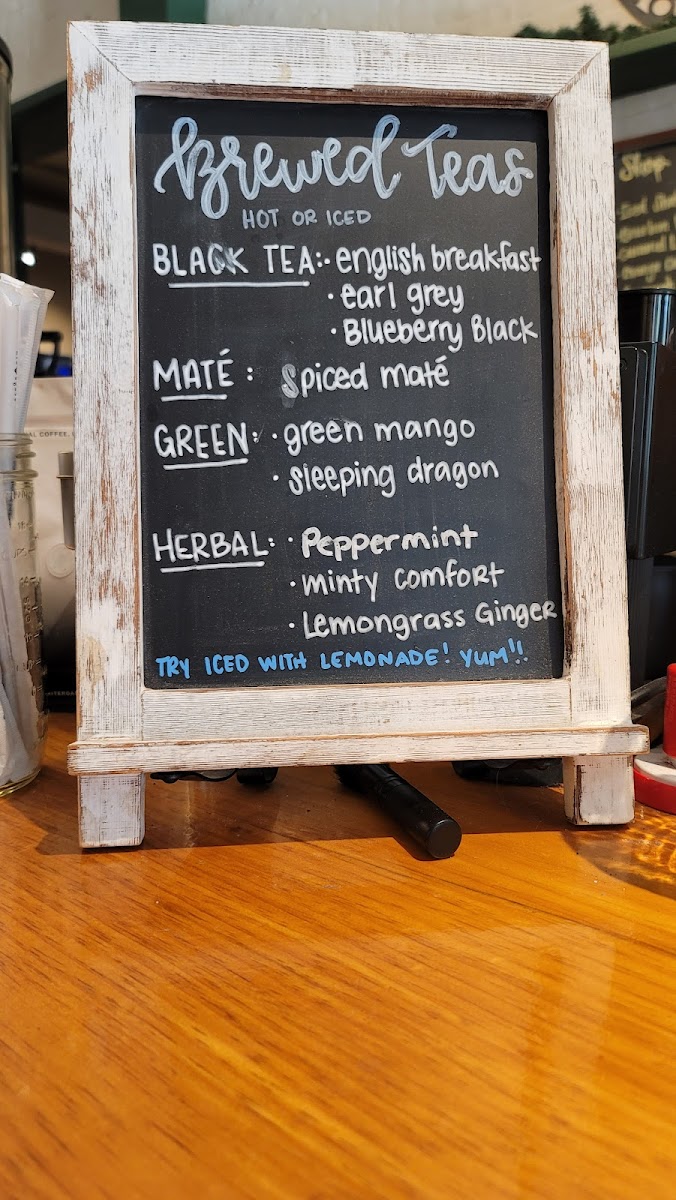 Brewed Teas
HOT OR ICED
BLACK TEA: · english breakfast
· earl grey
· Blueberry Black
MATÉ : Spiced maté
GREEN: · green mango
· sleeping dragon
HERBAL: · Peppermint
· minty comfort
· Lemongrass Ginger
TRY ICED WITH LEMONADE! YUM!!
AL COFFEE.
Slop